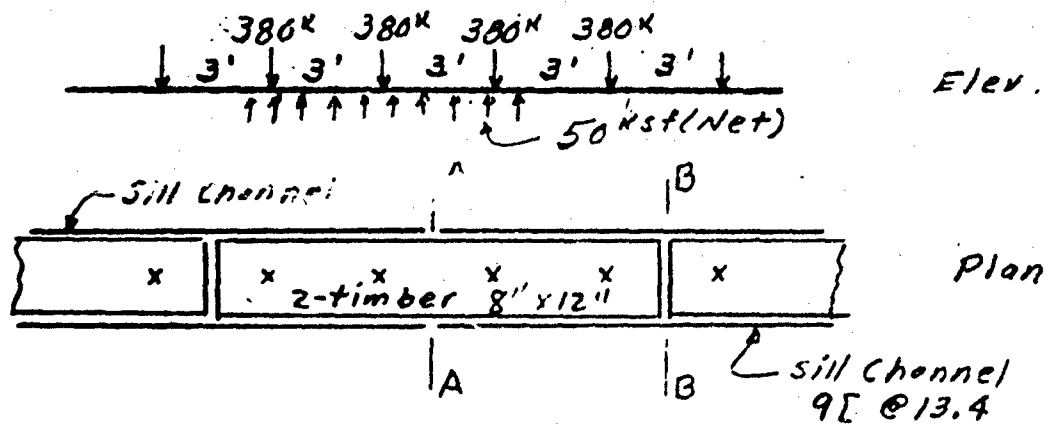 380K 380K 380K 380K
3' 3' 3' 3' 3'
Elev.
50 ksf (Net)
A B
Sill Channel
Plan
x x x x x x
2-timber 8" x 12"
A B
sill Channel
9[ @ 13.4